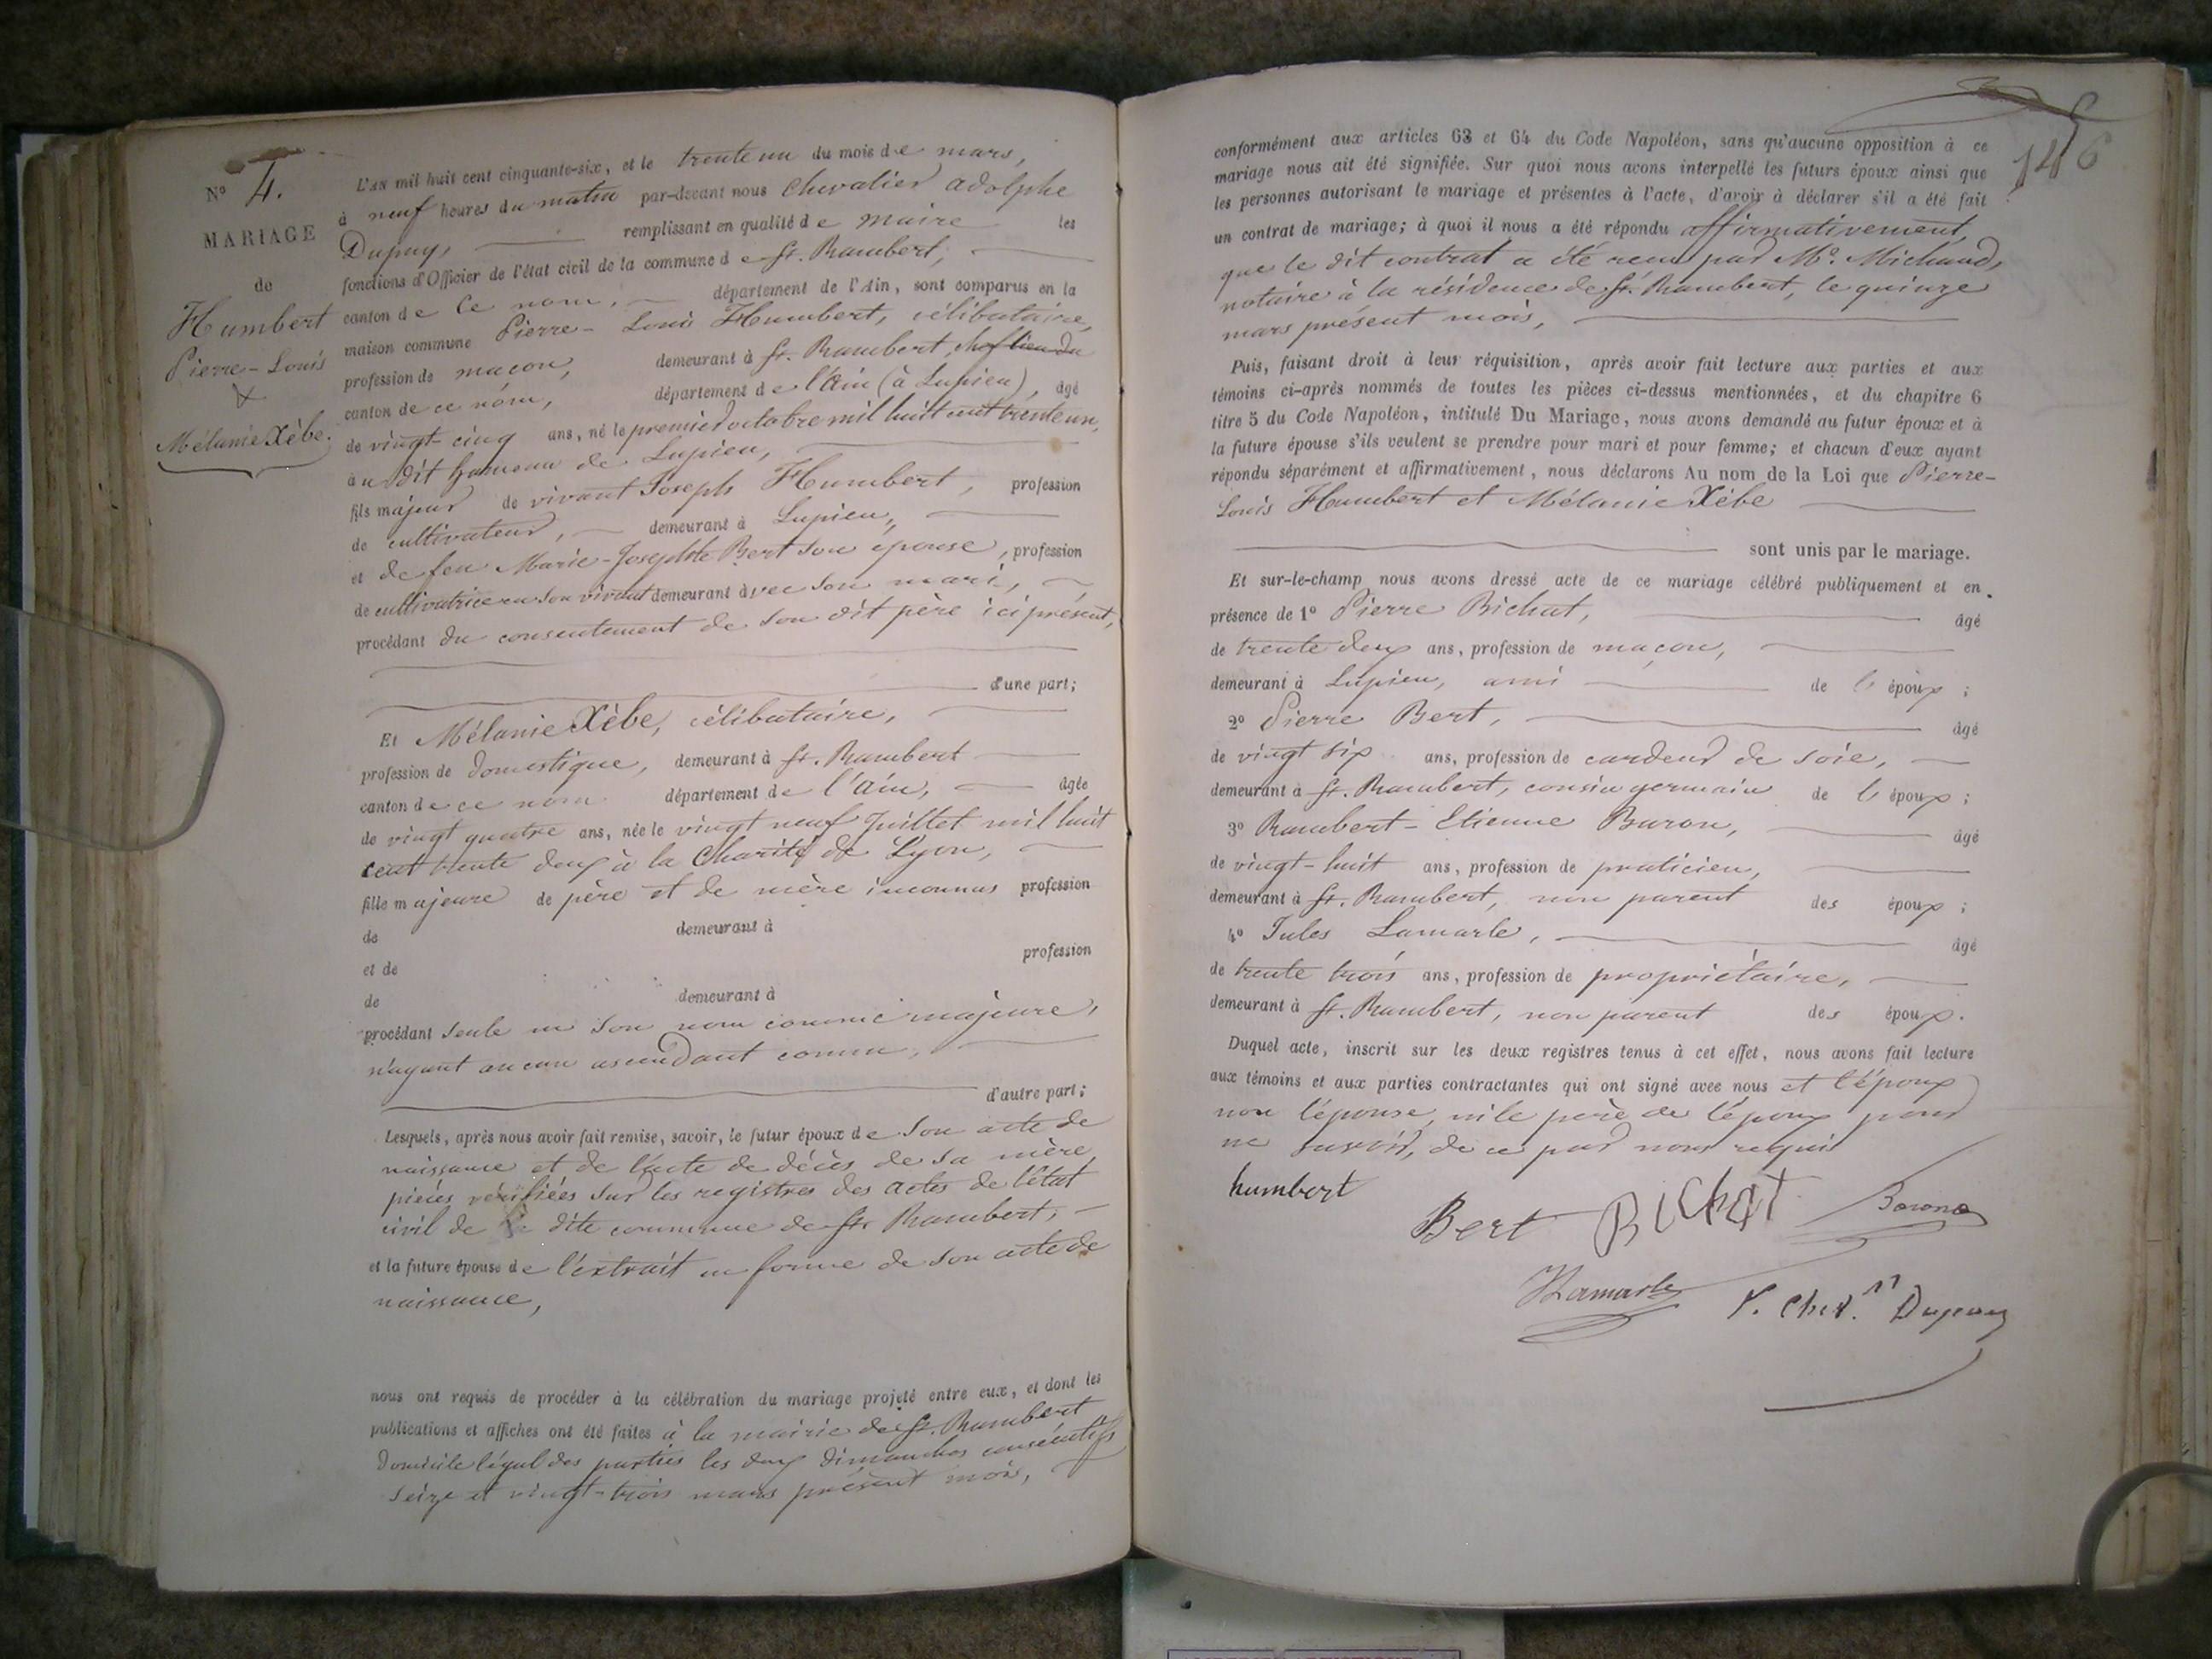 N° 4.
MARIAGE
de
Humbert
Pierre-Louis
&
Mélanie Xèbe.
L'AN mil huit cent cinquante-six, et le trente un du mois de mars,
à neuf heures du matin par-devant nous Chevalier Adolphe
Dupuy, remplissant en qualité de maire les
fonctions d'Officier de l'état civil de la commune de St. Rambert,
canton de ce nom, département de l'Ain, sont comparus en la
maison commune Pierre-Louis Humbert, célibataire,
profession de maçon, demeurant à St. Rambert, chef lieu du
canton de ce nom, département de l'Ain (à Lupieu), âgé
de vingt-cinq ans, né le premier octobre mil huit cent trente un,
au dit hameau de Lupieu,
fils majeur de vivant Joseph Humbert, profession
de cultivateur, demeurant à Lupieu,
et de feu Marie-Josephte Bert son épouse, profession
de cultivatrice en son vivant demeurant avec son mari,
procédant du consentement de son dit père ici présent,
d'une part;
Et Mélanie Xèbe, célibataire,
profession de domestique, demeurant à St. Rambert
canton de ce nom département de l'Ain, âgée
de vingt quatre ans, née le vingt neuf Juillet mil huit
cent trente deux à la Charité de Lyon,
fille majeure de père et de mère inconnus profession
de demeurant à
et de profession
de demeurant à
procédant seule en son nom comme majeure,
n'ayant aucun ascendant connu,
d'autre part;
Lesquels, après nous avoir fait remise, savoir, le futur époux de son acte de
naissance et de l'acte de décès de sa mère,
pièces vérifiées sur les registres des actes de l'état
civil de la dite commune de St. Rambert,
et la future épouse de l'extrait en forme de son acte de
naissance,
nous ont requis de procéder à la célébration du mariage projeté entre eux, et dont les
publications et affiches ont été faites à la mairie de St. Rambert
domicile légal des parties les deux dimanches consécutifs
seize et vingt-trois mars présent mois,
146
conformément aux articles 63 et 64 du Code Napoléon, sans qu'aucune opposition à ce
mariage nous ait été signifiée. Sur quoi nous avons interpellé les futurs époux ainsi que
les personnes autorisant le mariage et présentes à l'acte, d'avoir à déclarer s'il a été fait
un contrat de mariage; à quoi il nous a été répondu affirmativement,
que le dit contrat a été reçu par Me. Michaud,
notaire à la résidence de St. Rambert, le quinze
mars présent mois,
Puis, faisant droit à leur réquisition, après avoir fait lecture aux parties et aux
témoins ci-après nommés de toutes les pièces ci-dessus mentionnées, et du chapitre 6
titre 5 du Code Napoléon, intitulé Du Mariage, nous avons demandé au futur époux et à
la future épouse s'ils veulent se prendre pour mari et pour femme; et chacun d'eux ayant
répondu séparément et affirmativement, nous déclarons Au nom de la Loi que Pierre-
Louis Humbert et Mélanie Xèbe
sont unis par le mariage.
Et sur-le-champ nous avons dressé acte de ce mariage célébré publiquement et en
présence de 1° Pierre Bichat, âgé
de trente deux ans, profession de maçon,
demeurant à Lupieu, ami de l'époux;
2° Pierre Bert, âgé
de vingt six ans, profession de cardeur de soie,
demeurant à St. Rambert, cousin germain de l'époux;
3° Rambert-Etienne Baron, âgé
de vingt-huit ans, profession de praticien,
demeurant à St. Rambert, non parent des époux;
4° Jules Lamarle, âgé
de trente trois ans, profession de propriétaire,
demeurant à St. Rambert, non parent des époux.
Duquel acte, inscrit sur les deux registres tenus à cet effet, nous avons fait lecture
aux témoins et aux parties contractantes qui ont signé avec nous et l'époux
non l'épouse, ni le père de l'époux pour
ne savoir, de ce par nous requis
humbert
Bert Bichat Baron
JLamarle Chev. Dupuy